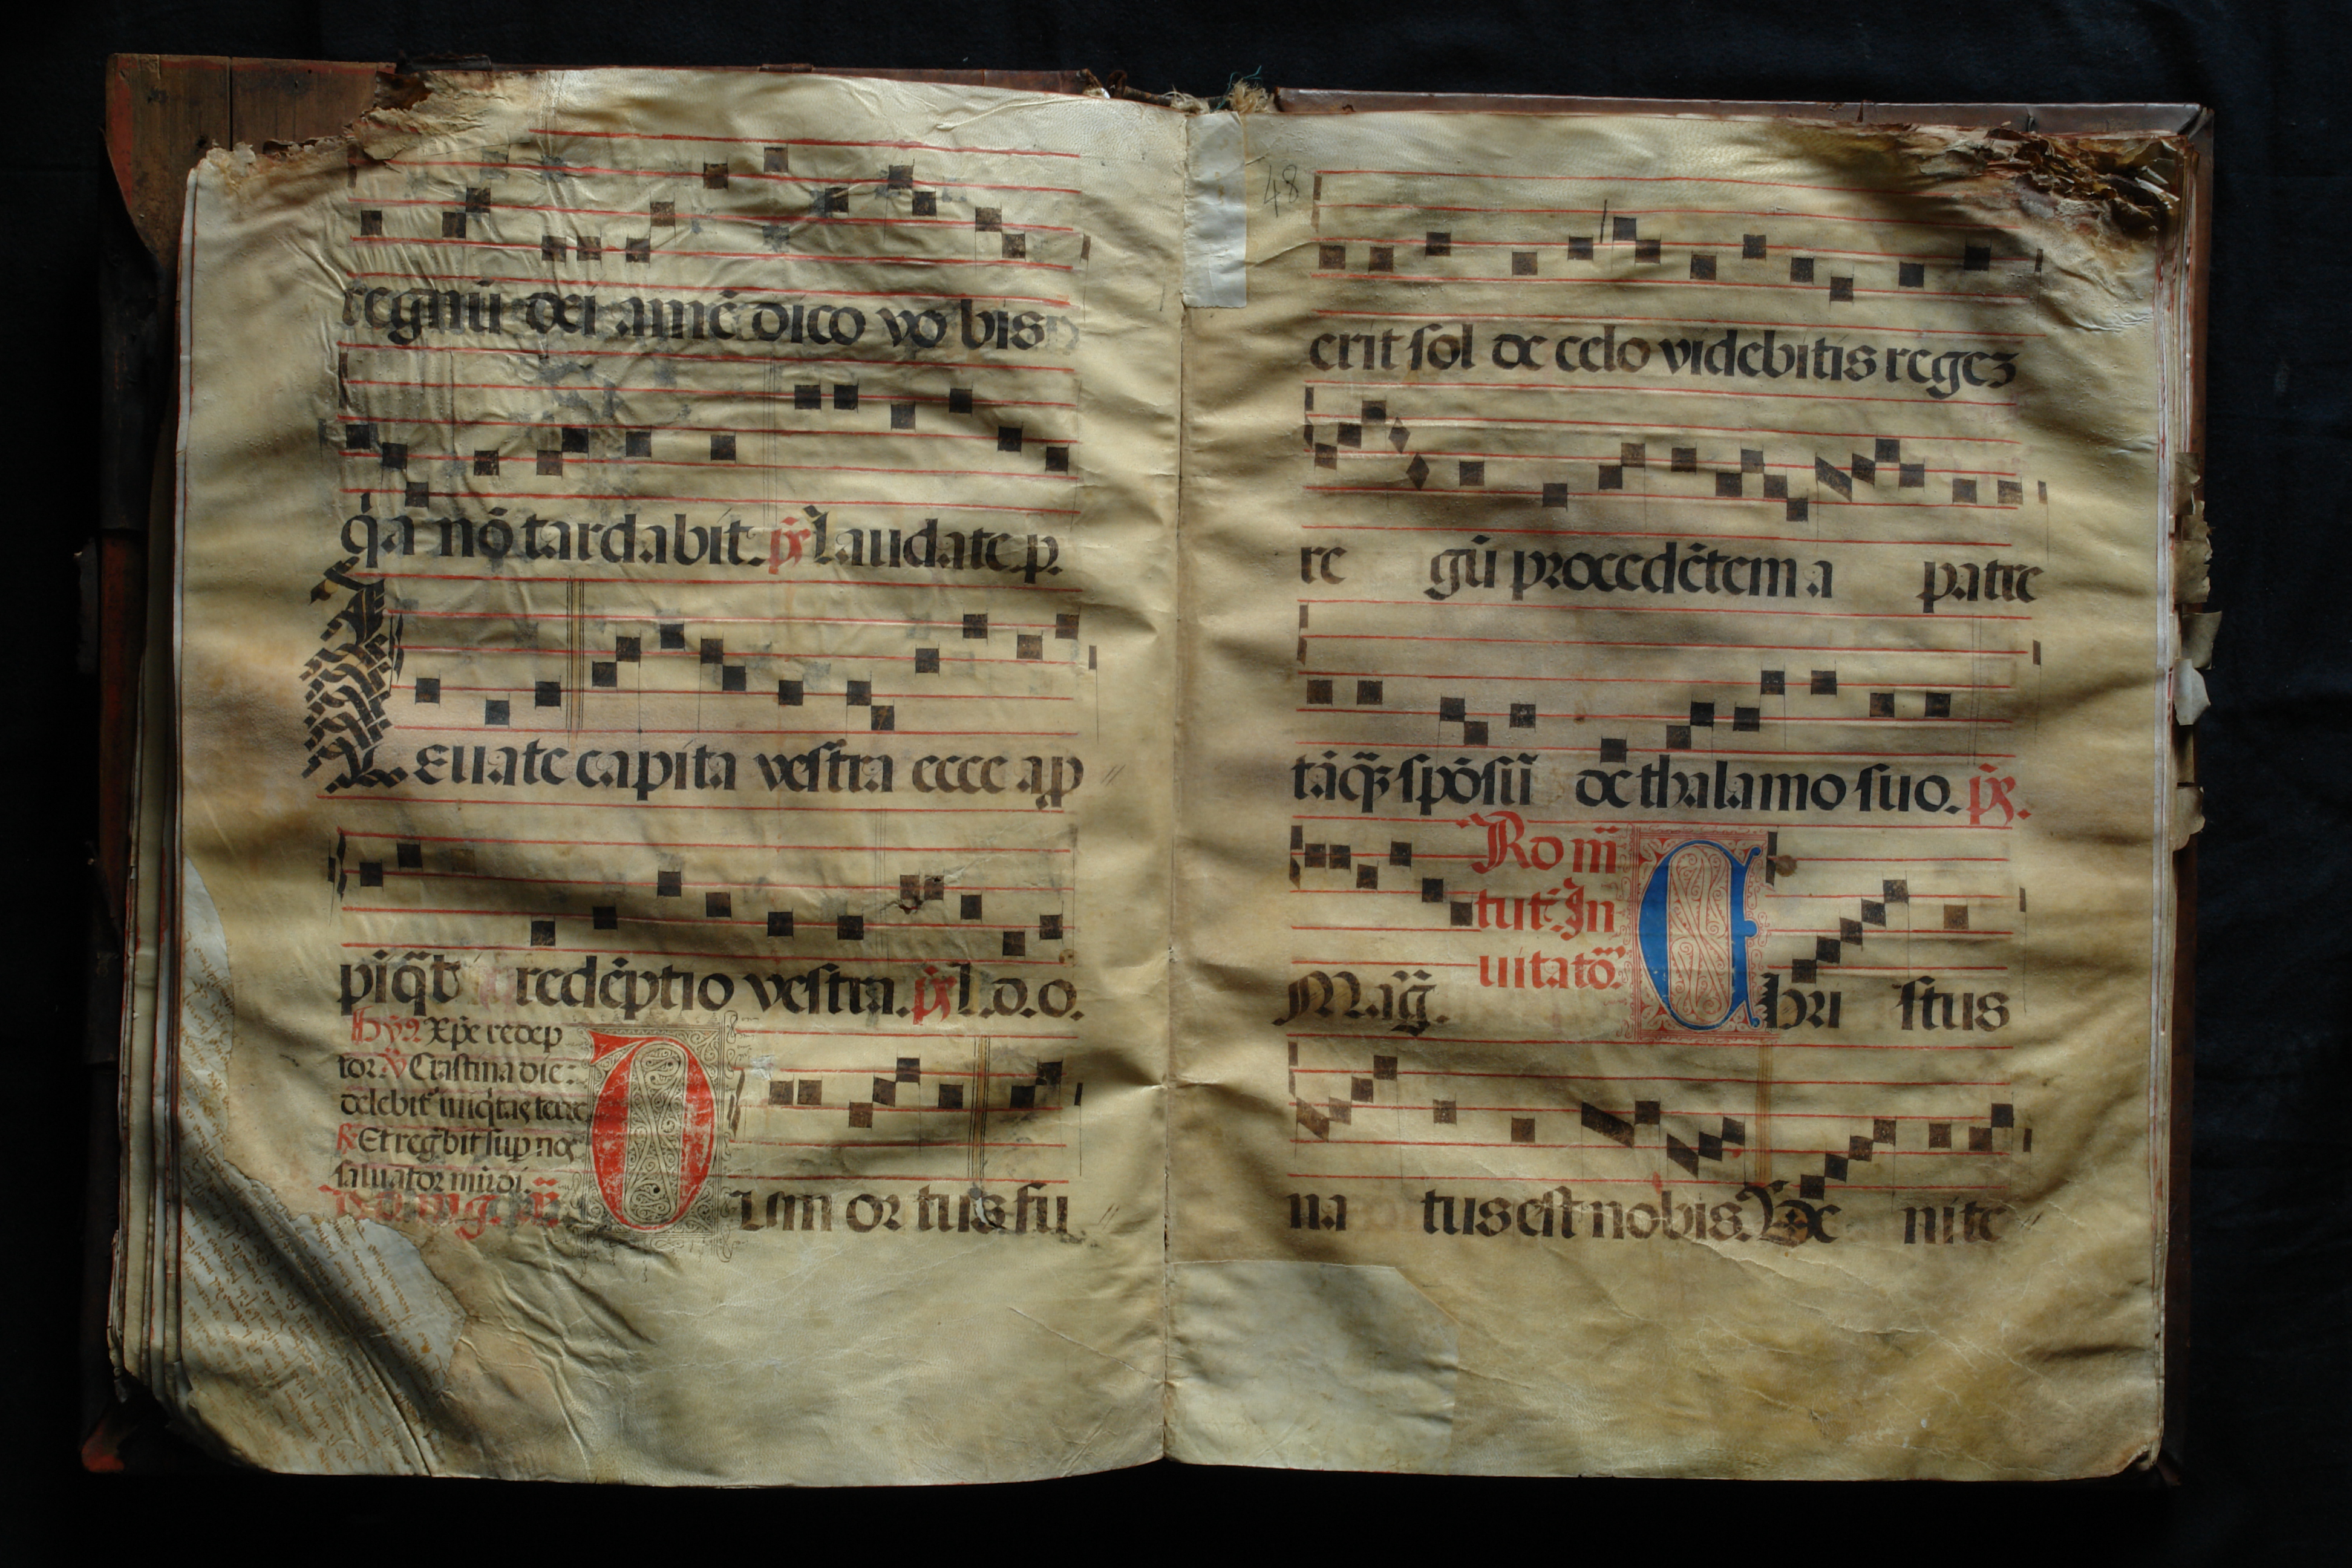 regnū dei amē dico vobis
q̇a nō tardabit. p̄s Laudate.p.
Leuate capita vestra ecce ap
redēptio vestra. p̄s l.d.o.
Hyꝰ Xp̄e redep
tor. ℣ Crastina die:
delebit᷑ iniq̇tas terre
℟ Et reg̅bit sup nos
saluator mūdi.
Um ortus fu
48
erit sol de celo videbitis regeꝫ
regū procedētem a patre
tāq̄ꝫ spōsū de thalamo suo. p̄s.
Ro m̄
tut᷑. In
uitatō.
Mag̅. Christus
natus est nobis. Ve nite